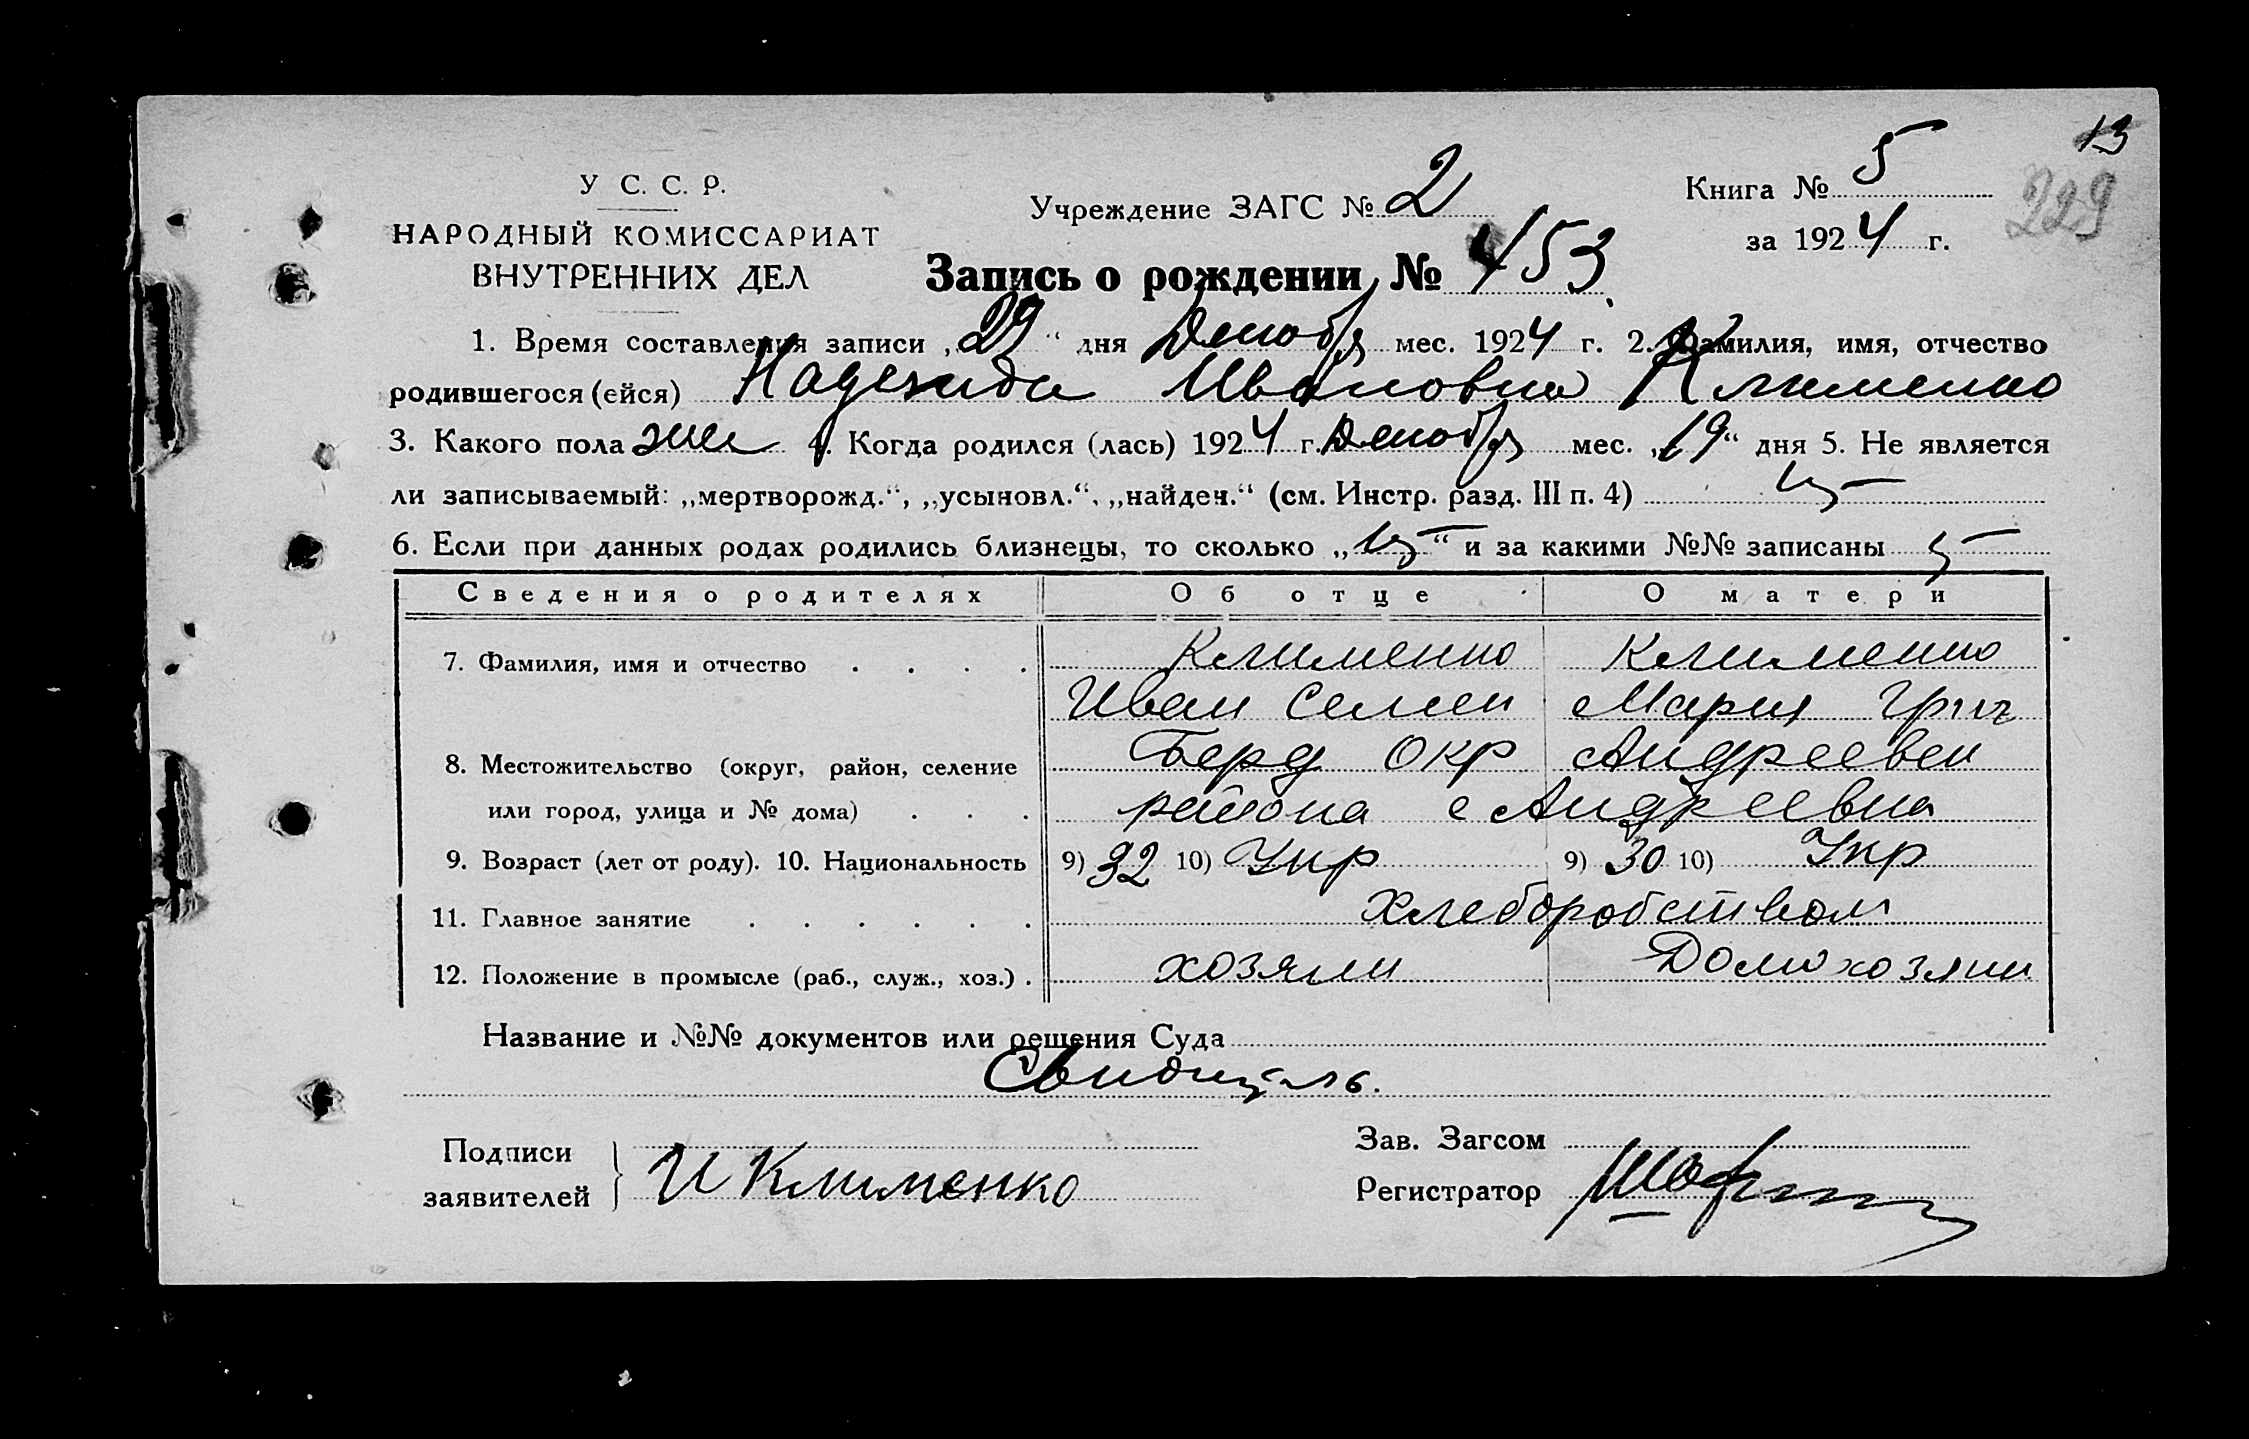 13
У С. С. Р.
Учреждение ЗАГС № 2
Книга № 5
229
НАРОДНЫЙ КОМИССАРИАТ
за 1924 г.
ВНУТРЕННИХ ДЕЛ
Запись о рождении № 453
1. Время составления записи „29“ дня Декабр мес. 1924 г. 2. Фамилия, имя, отчество
родившегося (ейся) Надежда Ивановна Клименко
3. Какого пола жен 4. Когда родился (лась) 1924 г. Декабр мес. „19“ дня 5. Не является
ли записываемый: „мертворожд.“, „усыновл.“, „найден.“ (см. Инстр. разд. III п. 4)
6. Если при данных родах родились близнецы, то сколько „ “ и за какими №№ записаны
Сведения о родителях Об отце О матери
7. Фамилия, имя и отчество . . . . Клименко Клименко
Иван Семен Мария Григ
8. Местожительство (округ, район, селение Берд Окр Андреевск
или город, улица и № дома) . . . района с Андреевка
9. Возраст (лет от роду). 10. Национальность 9) 32 10) Укр 9) 30 10) Укр
11. Главное занятие . . . . . . Хлеборобством
12. Положение в промысле (раб., служ., хоз.) . хозяин Домохозяин
Название и №№ документов или решения Суда
Подписи
заявителей
И Клименко
Зав. Загсом
Регистратор